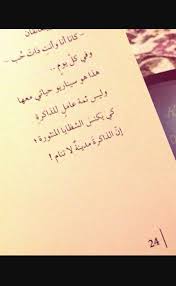 – كانا أنا وأنت ذات حُب –
وفي كلّ يومٍ ..
هذا هو سيناريو حياتي معها
وليس ثمة عامل للذاكرةِ
كي يكنسَ الشظايا المنثورة !
إنّ الذاكرةَ مدينةٌ لا تنام !
24